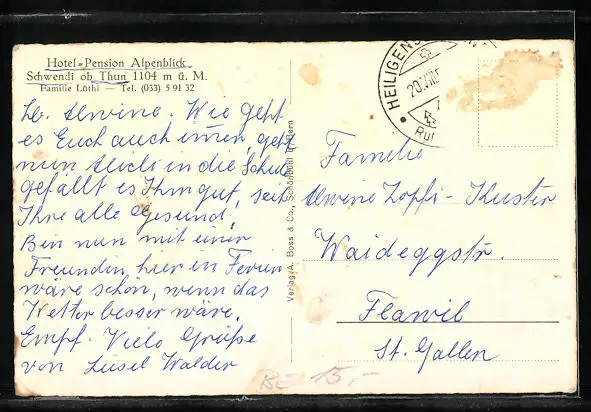 Hotel-Pension Alpenblick
Schwendi ob Thun 1104 m ü. M.
Familie Lüthi — Tel. (033) 5 91 32
Lb. Alwine. Wie geht
es Euch auch immer, geht
nun in die Schule
gefällt es Ihm gut, seit
Ihre alle gesund,
Bin nun mit einer
Freundin, hier in Ferien
wäre schön, wenn das
Wetter besser wäre.
Empf. Viele Grüsse
von Liesel Walder
Verlag A. Boss & Co., Schönbühl b. Bern
HEILIGENS
20.VIII
Ruh
Familie
Alwine Zopfi-Kuster
Waideggstr.
Flawil
St. Gallen
15,-